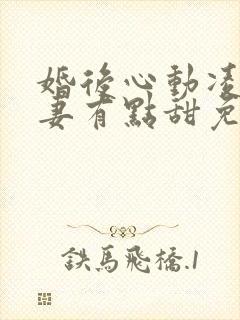 婚後心動凌
妻有點甜免
鉄馬飛橋.1